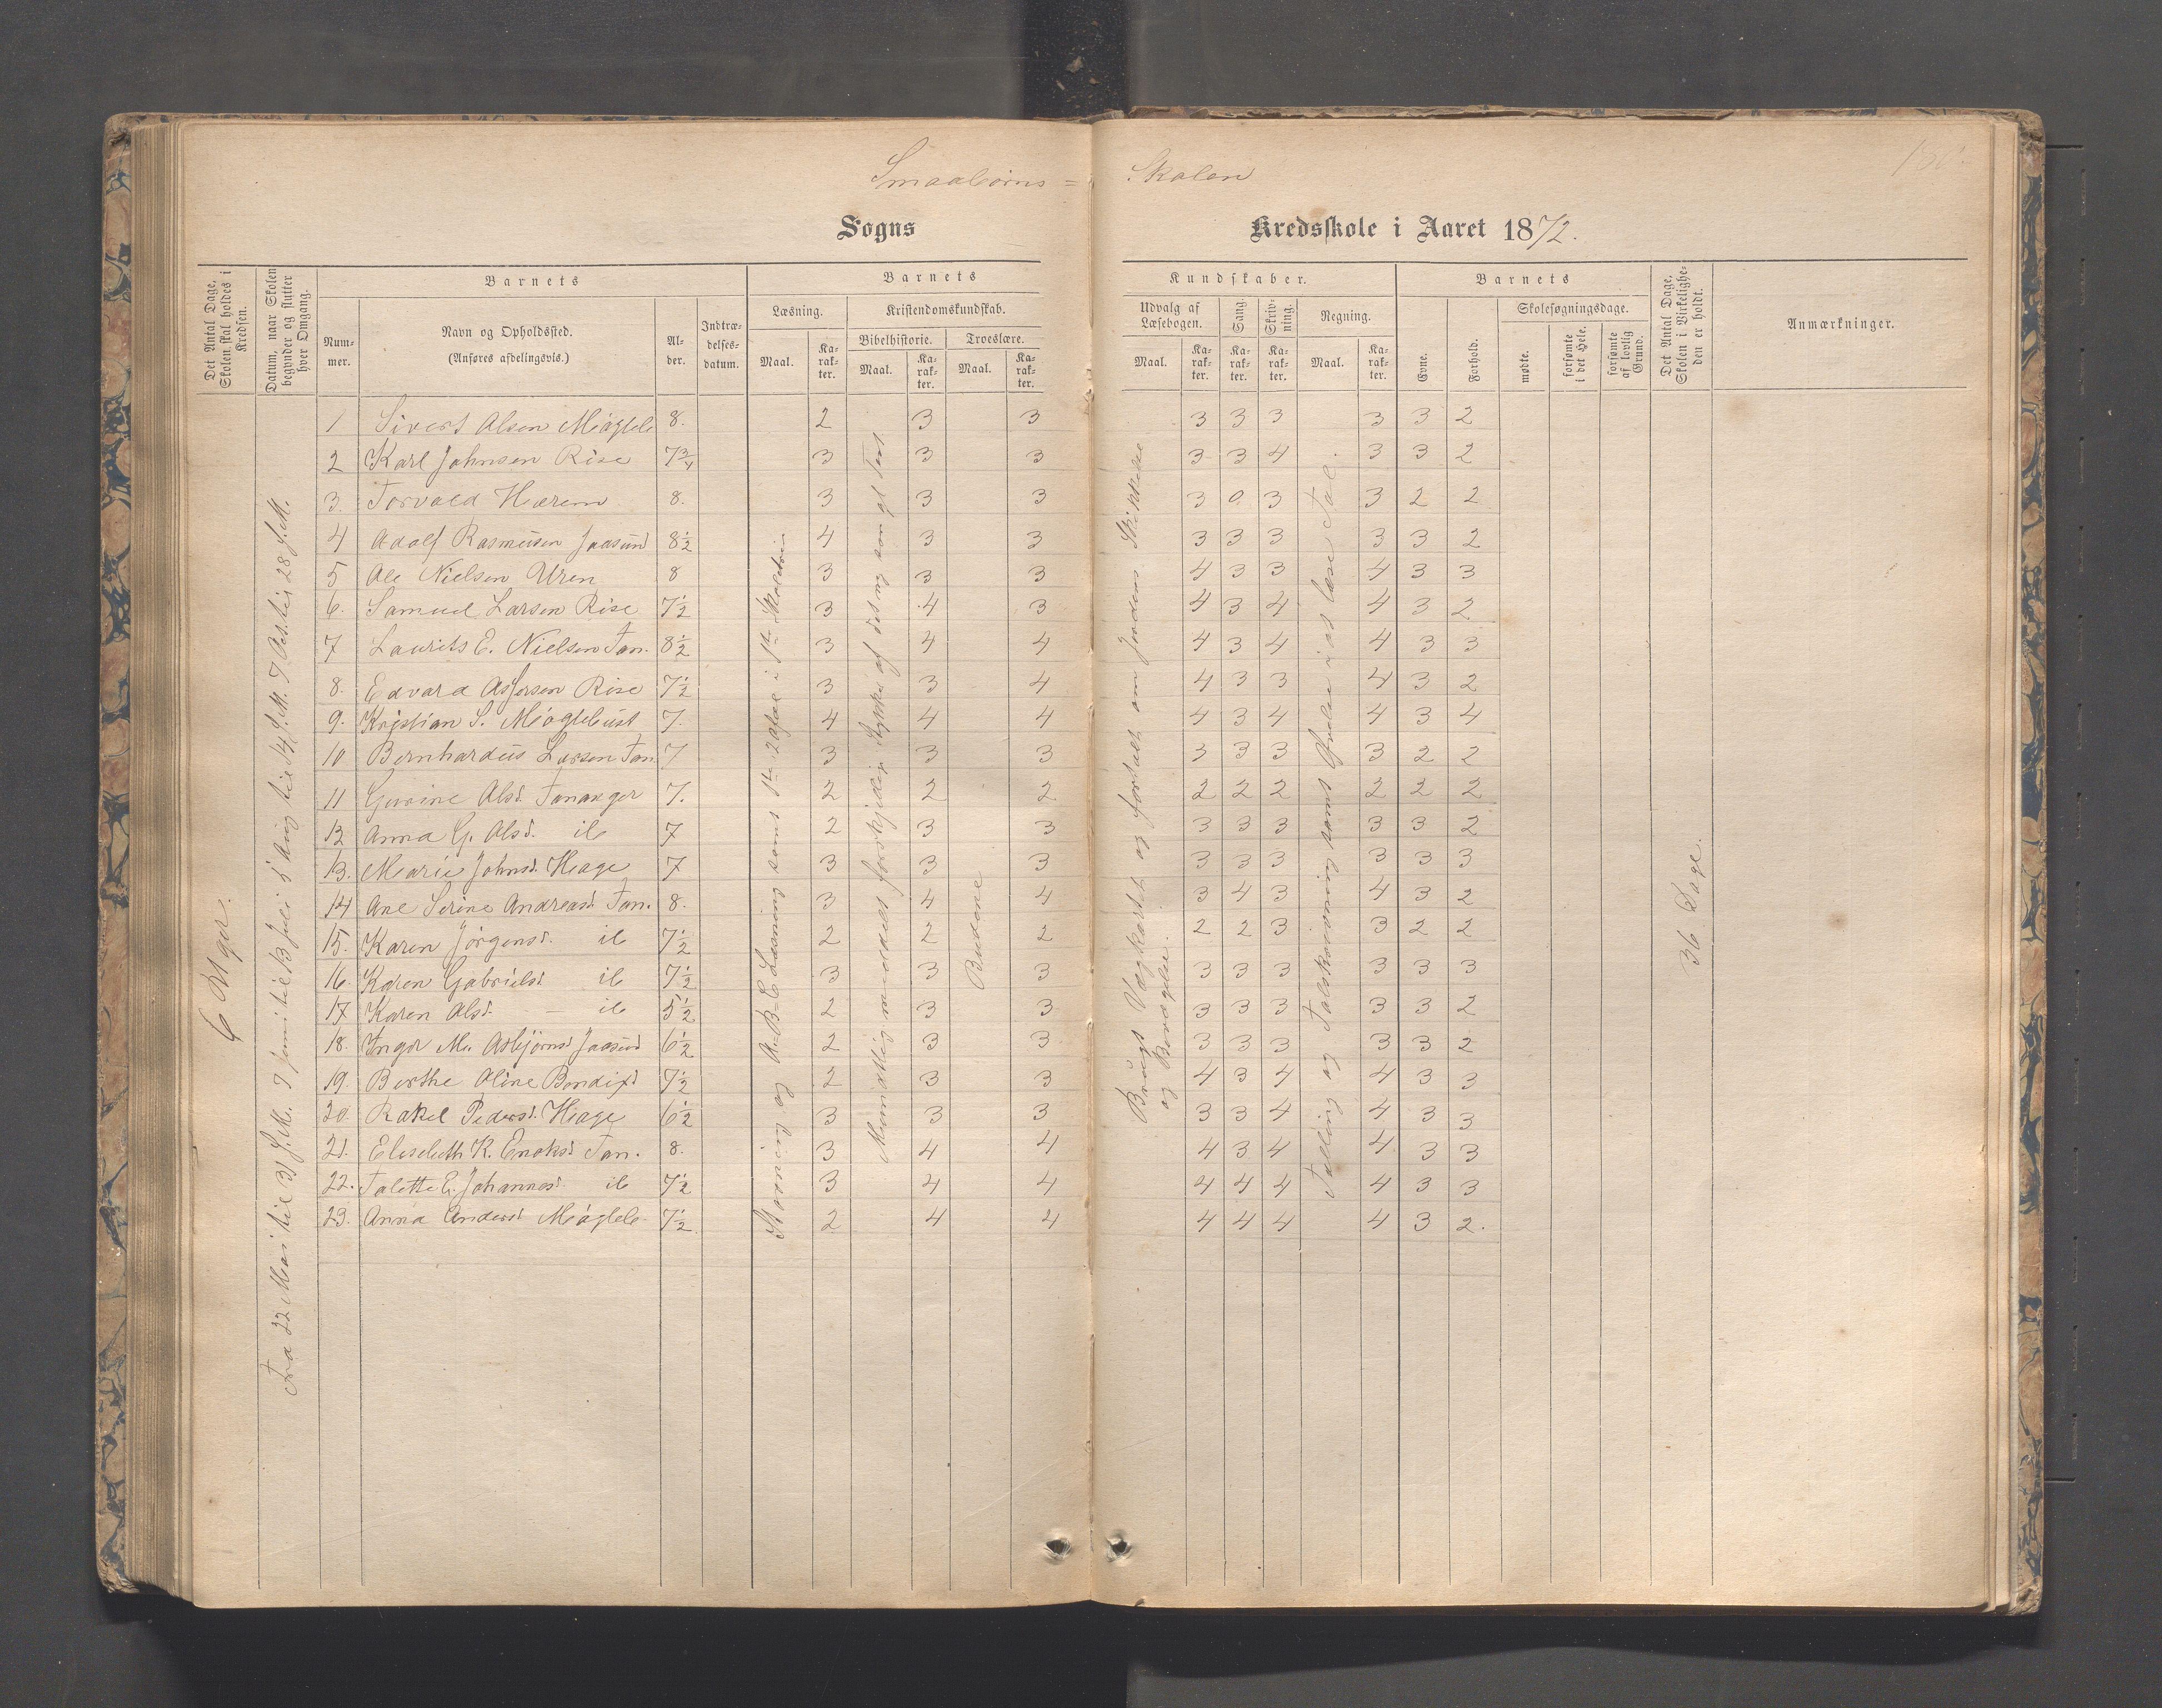 Smaabørns=Skolen
130.
Sogns Kredsskole i Aaret 1872.
Det Antal Dage, Skolen skal holdes i Kredsen.
Datum, naar Skolen begynder og slutter hver Omgang.
Barnets
Nummer.
Navn og Opholdssted.
(Anføres afdelingsvis.)
Alder.
Indtrædelsesdatum.
Barnets Kundskaber.
Læsning.
Maal.
Karakter.
Kristendomskundskab.
Bibelhistorie.
Maal.
Karakter.
Troeslære.
Maal.
Karakter.
Udvalg af Læsebogen.
Maal.
Karakter.
Sang.
Karakter.
Skrivning.
Karakter.
Regning.
Maal.
Karakter.
Barnets
Evne.
Forhold.
Skolesøgningsdage.
mødte.
forsømte i det Hele.
forsømte af lovlig Grund.
Det Antal Dage, Skolen i Virkeligheden er holdt.
Anmærkninger.
6 Uger.
Fra 22 Mai til 31 s. M. 7 Juni til 13 Juli 5 Aug til 14 s. M. 7 Oct. til 28 s. M.
Stavning og A-B-C Læsning samt 1ste 20 i 1ste Skoletrin
Mundtlig meddelt forskjellige Stykker af det ny som gl Test
Budene
Brugt Vægkartet og fortalt om Jordens Skikkelse og Bevægelse.
Tælling og Talskrivning samt Øvelse i at læse Tal.
36 Dage.
1 Sivert Olsen Møgleb 8. 2 3 3 3 3 3 3 3 2
2 Karl Johnsen Rise 7 3/4 3 3 3 3 3 4 3 3 2
3. Torvald Hærem 8. 3 3 3 3 0. 3 3 2 2
4 Adolf Rasmusen Jaasund 8 1/2 4 3 3 3 3 3 3 3 2
5 Ole Nielsen Uren 8 3 3 3 4 3 3 4 3 3
6. Samuel Larsen Rise 7 1/2 3 4 3 4 3 4 4 3 2
7 Laurits E. Nielsen Tan. 8 1/2 3 4 4 4 3 4 4 3 3
8. Edvard Asserson Rise 7 1/2 3 3 4 4 3 3 4 3 2
9. Kristian S. Møglebust 7. 4 4 4 4 3 4 4 3 4
10 Bernhardus Larsen Tan. 7 3 3 3 3 3 3 3 2 2
11 Gurine Olsd. Tananger 7. 2 2 2 2 2 2 2 2 2
12 Anna G. Olsd. ib 7 2 3 3 3 3 3 3 3 2
13. Marie Johnsd. Hage 7 3 3 3 3 3 3 3 3 3
14 Ane Serine Andreasd. Tan. 8. 3 4 4 3 4 3 4 3 2
15. Karen Jörgensd. ib 7 1/2 2 2 2 2 2 3 3 2 2
16. Karen Gabrielsd ib 7 1/2 3 3 3 3 3 3 3 3 3
17 Karen Olsd. — ib 5 1/2 2 3 3 3 3 3 3 3 2
18. Inger M. Asbjörnsd Jaasund 6 1/2 2 3 3 3 3 3 3 3 2
19. Berthe Oline Bendixd 7 1/2 2 3 3 4 3 4 4 3 3
20. Rakel Pedersd. Hage 6 1/2 3 3 3 3 3 4 4 3 3
21. Elisebeth K. Enoksd Tan. 8. 3 4 4 4 3 4 4 3 3
22. Talette E. Johannesd. ib 7 1/2 3 4 4 4 4 4 4 3 3
23. Anna Andersd Møgleb. 7 1/2 2 4 4 4 4 4 4 3 2.